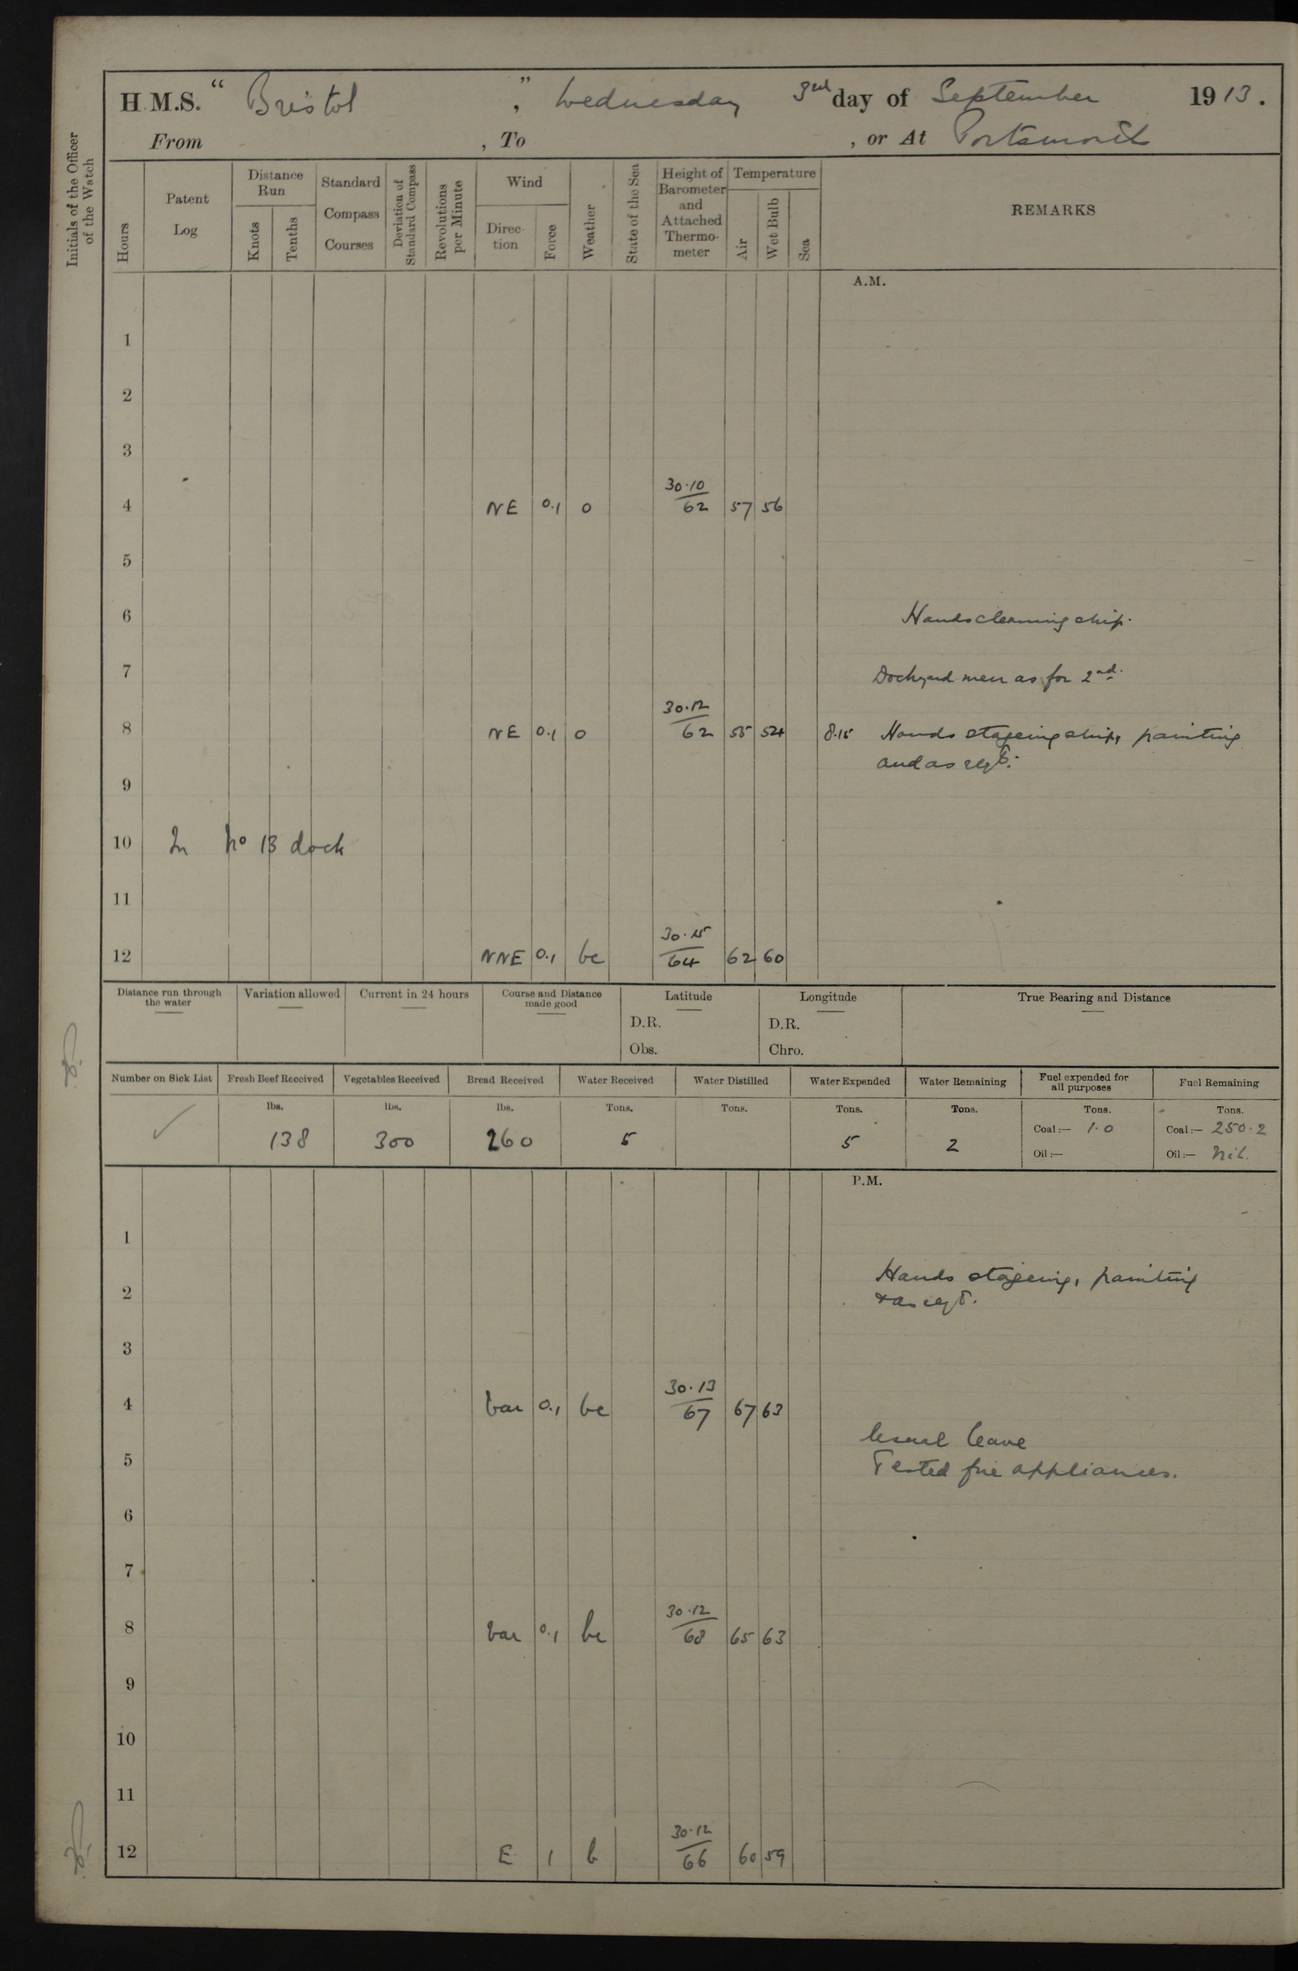 H.M.S. "Bristol", Wednesday 3rd day of September 1913.
From , To , or At Portsmouth
Initials of the Officer of the Watch
Hours
Patent Log
Distance Run
Knots
Tenths
Standard Compass Courses
Deviation of Standard Compass
Revolutions per Minute
Wind
Direction
Force
Weather
State of the Sea
Height of Barometer and Attached Thermometer
Temperature
Air
Wet Bulb
Sea
REMARKS
A.M.
1
2
3
4 NE 0.1 o 30.10/62 57 56
5
6 Hands cleaning ship.
7 Dockyard men as for 2nd.
8 NE 0.1 o 30.12/62 55 54 8.15 Hands stageing ship, painting
and as reqd.
9
10 In No 13 dock
11
12 NNE 0.1 bc 30.15/64 62 60
Distance run through the water
Variation allowed
Current in 24 hours
Course and Distance made good
Latitude
D.R.
Obs.
Longitude
D.R.
Chro.
True Bearing and Distance
Number on Sick List
Fresh Beef Received lbs. 138
Vegetables Received lbs. 300
Bread Received lbs. 260
Water Received Tons. 5
Water Distilled Tons.
Water Expended Tons. 5
Water Remaining Tons. 2
Fuel expended for all purposes Tons.
Coal:— 1.0
Oil:—
Fuel Remaining Tons.
Coal:— 250.2
Oil:— Nil.
P.M.
1
2 Hands stageing, painting
& as reqd.
3
4 var 0.1 bc 30.13/67 67 63
Usual leave
5 Tested fire appliances.
6
7
8 var 0.1 bc 30.12/68 65 63
9
10
11
12 E 1 b 30.12/66 60 59